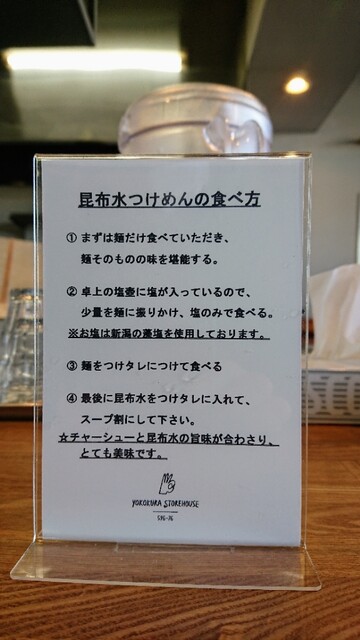 昆布水つけめんの食べ方
① まずは麺だけ食べていただき、
麺そのものの味を堪能する。
② 卓上の塩壺に塩が入っているので、
少量を麺に振りかけ、塩のみで食べる。
※お塩は新潟の藻塩を使用しております。
③ 麺をつけタレにつけて食べる
④ 最後に昆布水をつけタレに入れて、
スープ割にして下さい。
☆チャーシューと昆布水の旨味が合わさり、
とても美味です。
YOKOKURA STOREHOUSE